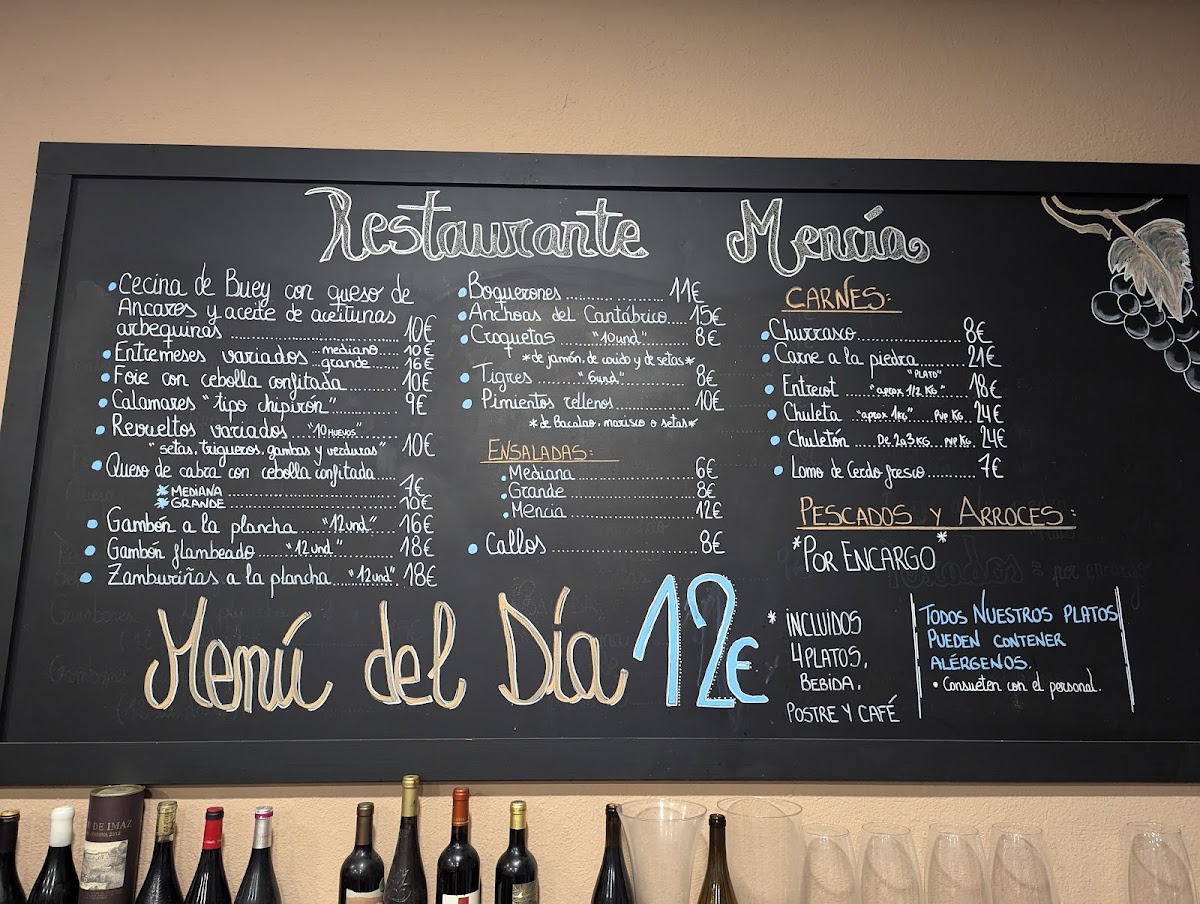 Restaurante Mencía
Cecina de Buey con queso de
Ancares y aceite de aceitunas
arbequinas 10€
Entremeses variados mediano 10€
grande 16€
Foie con cebolla confitada 10€
Calamares "tipo chipirón" 9€
Revueltos variados "10 HUEVOS"
"setas, trigueros, gambas y verduras" 10€
Queso de cabra con cebolla confitada
* MEDIANA 7€
* GRANDE 10€
Gambón a la plancha "12 und" 16€
Gambón flambeado "12 und" 18€
Zamburiñas a la plancha "12 und" 18€
Boquerones 11€
Anchoas del Cantábrico 15€
Croquetas "10 und" 8€
*de jamón, de cocido y de setas*
Tigres "6 und" 8€
Pimientos rellenos 10€
*de Bacalao, marisco o setas*
ENSALADAS:
Mediana 6€
Grande 8€
Mencia 12€
Callos 8€
CARNES:
Churrasco 8€
Carne a la piedra 21€
"PLATO"
Entrecot "aprox 1/2 Kg" 18€
Chuleta "aprox 1Kg" PVP KG. 24€
Chuletón DE 2 a 3 KG PVP KG. 24€
Lomo de Cerdo fresco 7€
PESCADOS Y ARROCES:
*POR ENCARGO*
Menú del Día 12€
* INCLUIDOS
4 PLATOS,
BEBIDA,
POSTRE Y CAFÉ
TODOS NUESTROS PLATOS
PUEDEN CONTENER
ALÉRGENOS.
• Consulten con el personal.
DE IMAZ